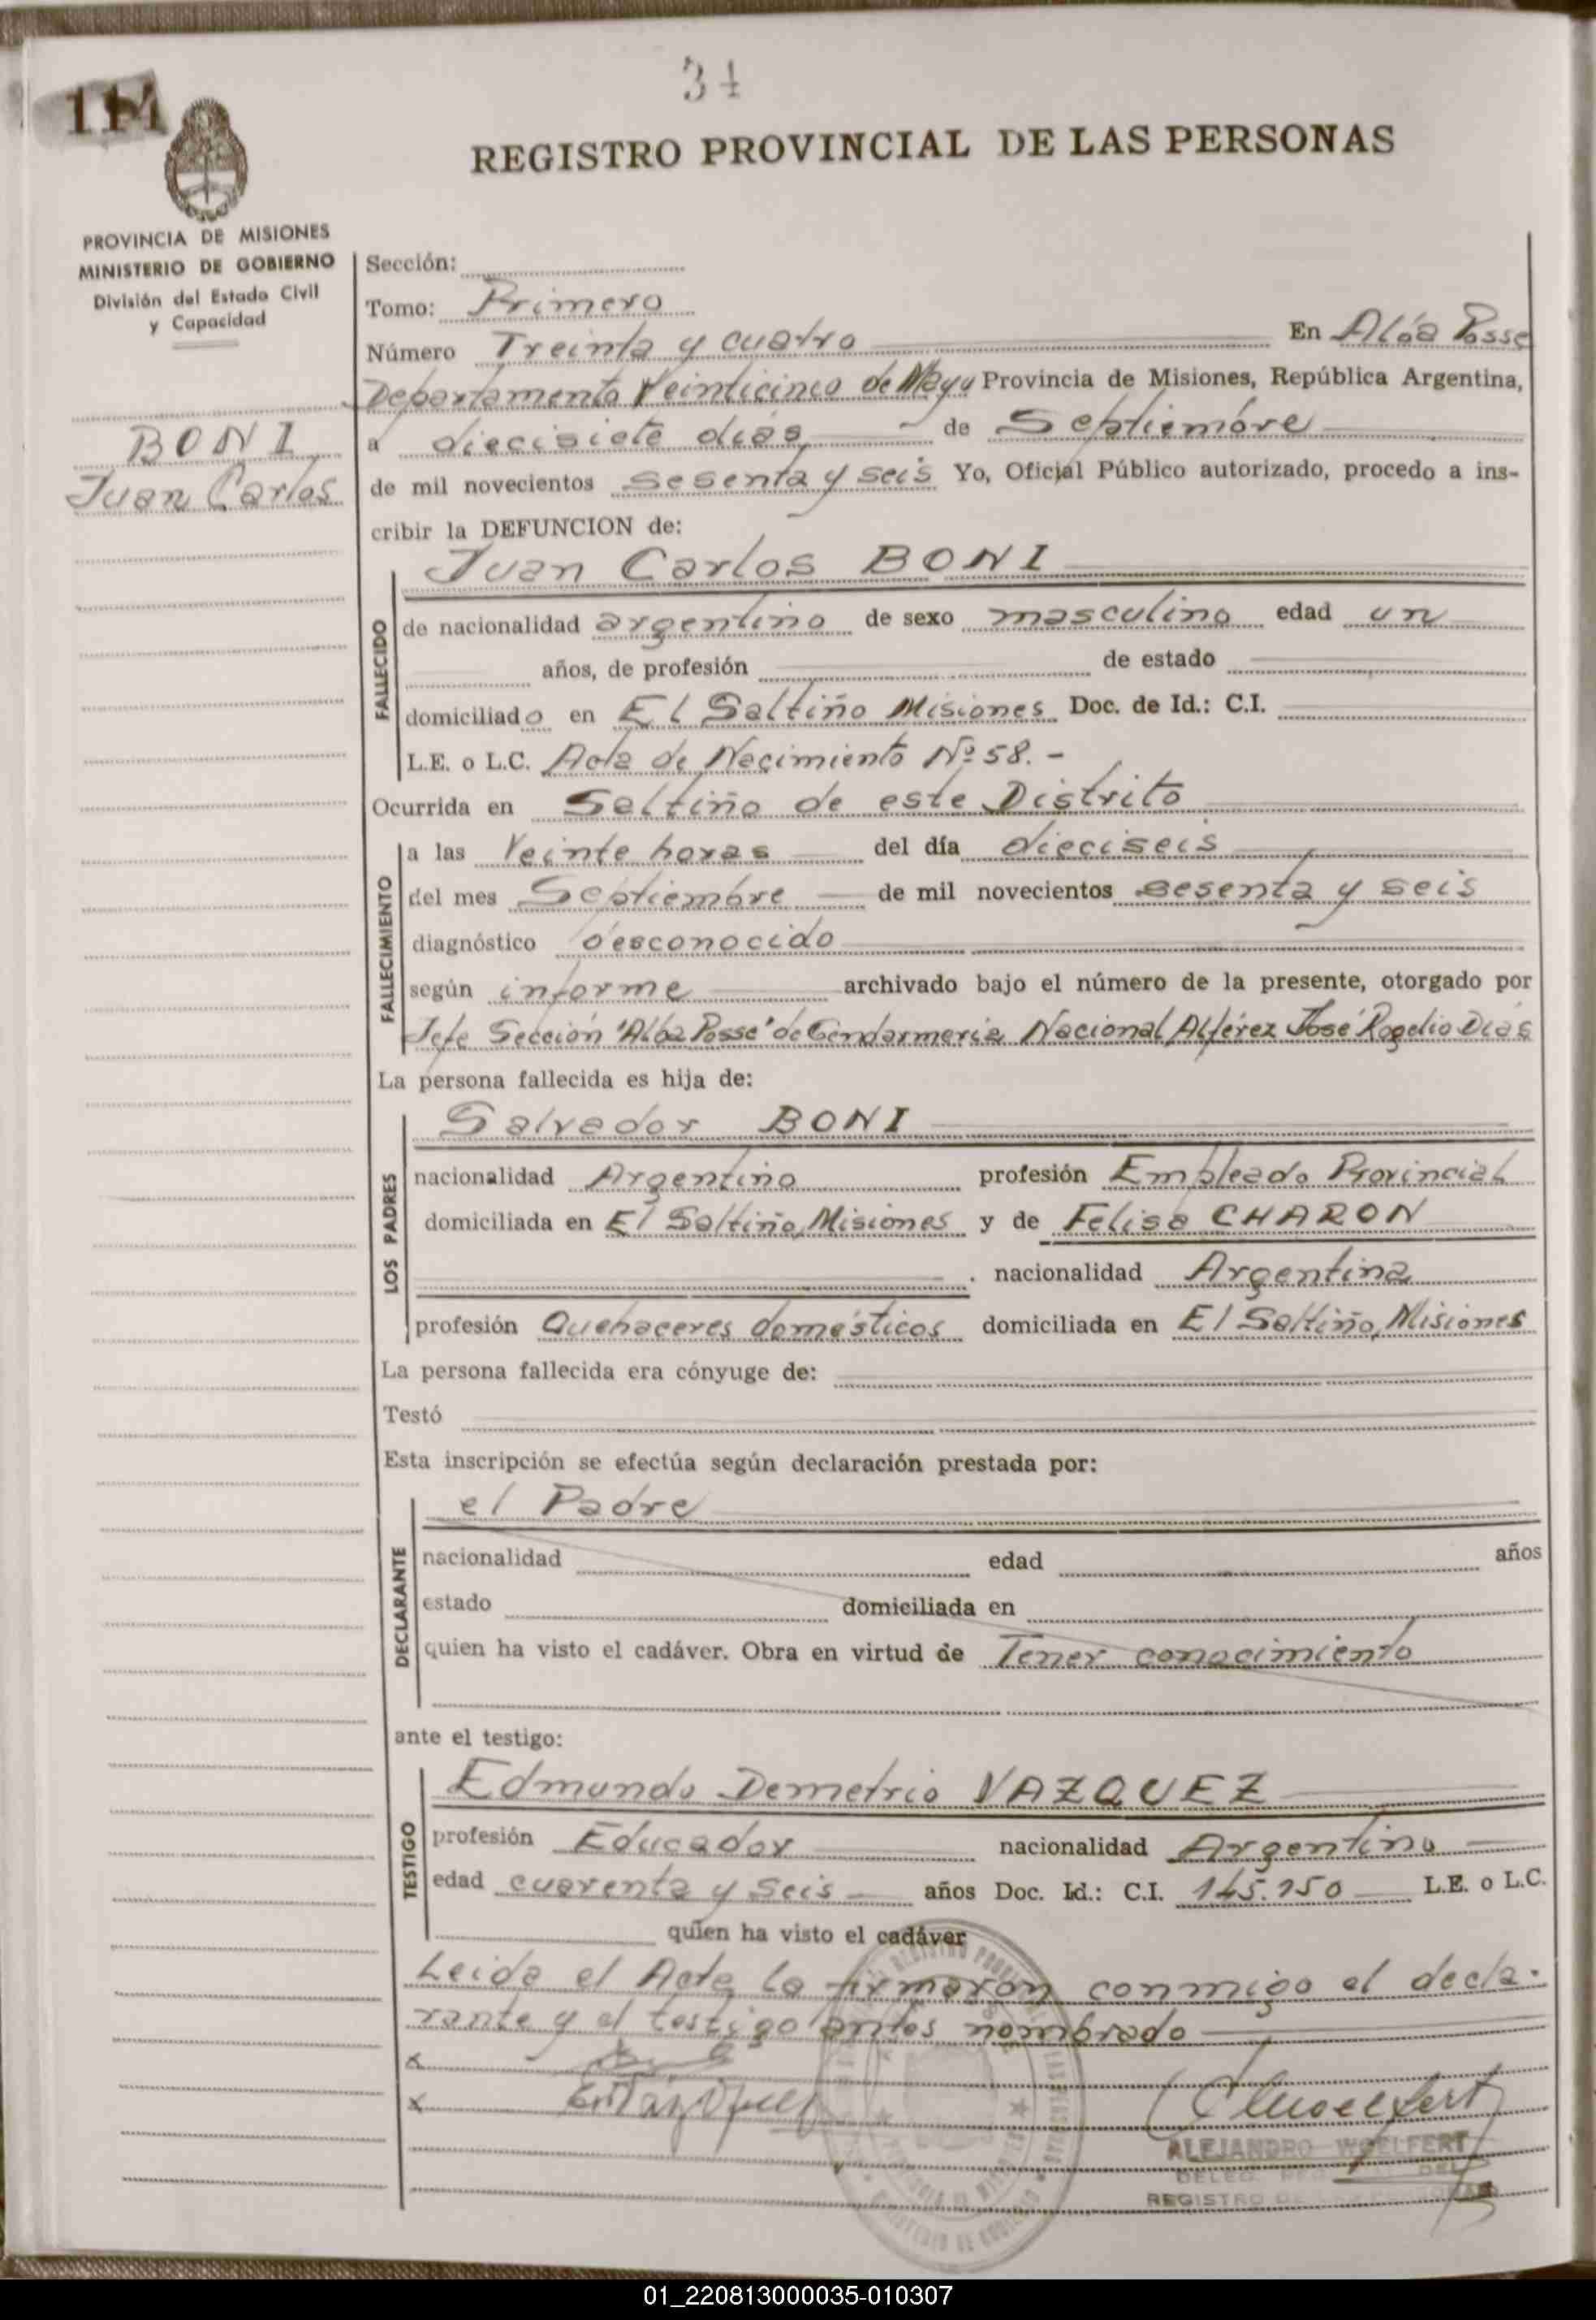 34
114
REGISTRO PROVINCIAL DE LAS PERSONAS
PROVINCIA DE MISIONES
MINISTERIO DE GOBIERNO
División del Estado Civil
y Capacidad
BONI
Juan Carlos
Sección:
Tomo: Primero
Número Treinta y cuatro En Alba Posse
Departamento Veinticinco de Mayo Provincia de Misiones, República Argentina,
a diecisiete dias de Septiembre
de mil novecientos sesenta y seis Yo, Oficial Público autorizado, procedo a ins-
cribir la DEFUNCION de:
Juan Carlos BONI
FALLECIDO
de nacionalidad argentino de sexo masculino edad un
años, de profesión de estado
domiciliado en El Saltiño Misiones Doc. de Id.: C.I.
L.E. o L.C. Acta de Nacimiento Nº 58.-
Ocurrida en Saltiño de este Distrito
FALLECIMIENTO
a las Veinte horas del día dieciseis
del mes Septiembre de mil novecientos sesenta y seis
diagnóstico desconocido
según informe archivado bajo el número de la presente, otorgado por
Jefe Sección "Alba Posse" de Gendarmeria Nacional, Alférez José Rogelio Dias
La persona fallecida es hija de:
LOS PADRES
Salvador BONI
nacionalidad Argentino profesión Empleado Provincial
domiciliada en El Saltiño, Misiones y de Felisa CHARON
. nacionalidad Argentina
profesión Quehaceres domésticos domiciliada en El Saltiño, Misiones
La persona fallecida era cónyuge de:
Testó
Esta inscripción se efectúa según declaración prestada por:
DECLARANTE
el Padre
nacionalidad edad años
estado domiciliada en
quien ha visto el cadáver. Obra en virtud de Tener conocimiento
ante el testigo:
TESTIGO
Edmundo Demetrio VAZQUEZ
profesión Educador nacionalidad Argentino
edad cuarenta y seis años Doc. Id.: C.I. 145.150 L.E. o L.C.
quien ha visto el cadáver
Leida el Acta la firmaron conmigo el decla-
rante y el testigo antes nombrado
x
x
ALEJANDRO WOELFERT
REGISTRO
01_220813000035-010307